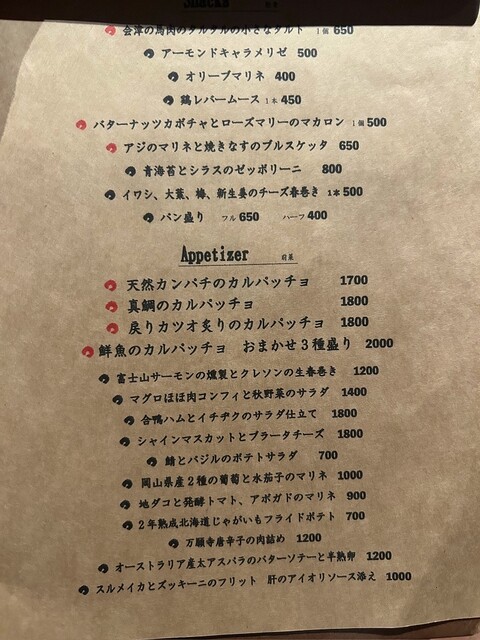 Snacks
会津の馬肉のタルタルの小さなタルト 1個 650
アーモンドキャラメリゼ 500
オリーブマリネ 400
鶏レバームース 1本 450
バターナッツカボチャとローズマリーのマカロン 1個 500
アジのマリネと焼きなすのブルスケッタ 650
青海苔とシラスのゼッポリーニ 800
イワシ、大葉、梅、新生姜のチーズ春巻き 1本 500
パン盛り フル 650 ハーフ 400
Appetizer 前菜
天然カンパチのカルパッチョ 1700
真鯛のカルパッチョ 1800
戻りカツオ炙りのカルパッチョ 1800
鮮魚のカルパッチョ おまかせ3種盛り 2000
富士山サーモンの燻製とクレソンの生春巻き 1200
マグロほほ肉コンフィと秋野菜のサラダ 1400
合鴨ハムとイチヂクのサラダ仕立て 1800
シャインマスカットとブラータチーズ 1800
鯖とバジルのポテトサラダ 700
岡山県産2種の葡萄と水茄子のマリネ 1000
地ダコと発酵トマト、アボガドのマリネ 900
2年熟成北海道じゃがいもフライドポテト 700
万願寺唐辛子の肉詰め 1200
オーストラリア産太アスパラのバターソテーと半熟卵 1200
スルメイカとズッキーニのフリット 肝のアイオリソース添え 1000